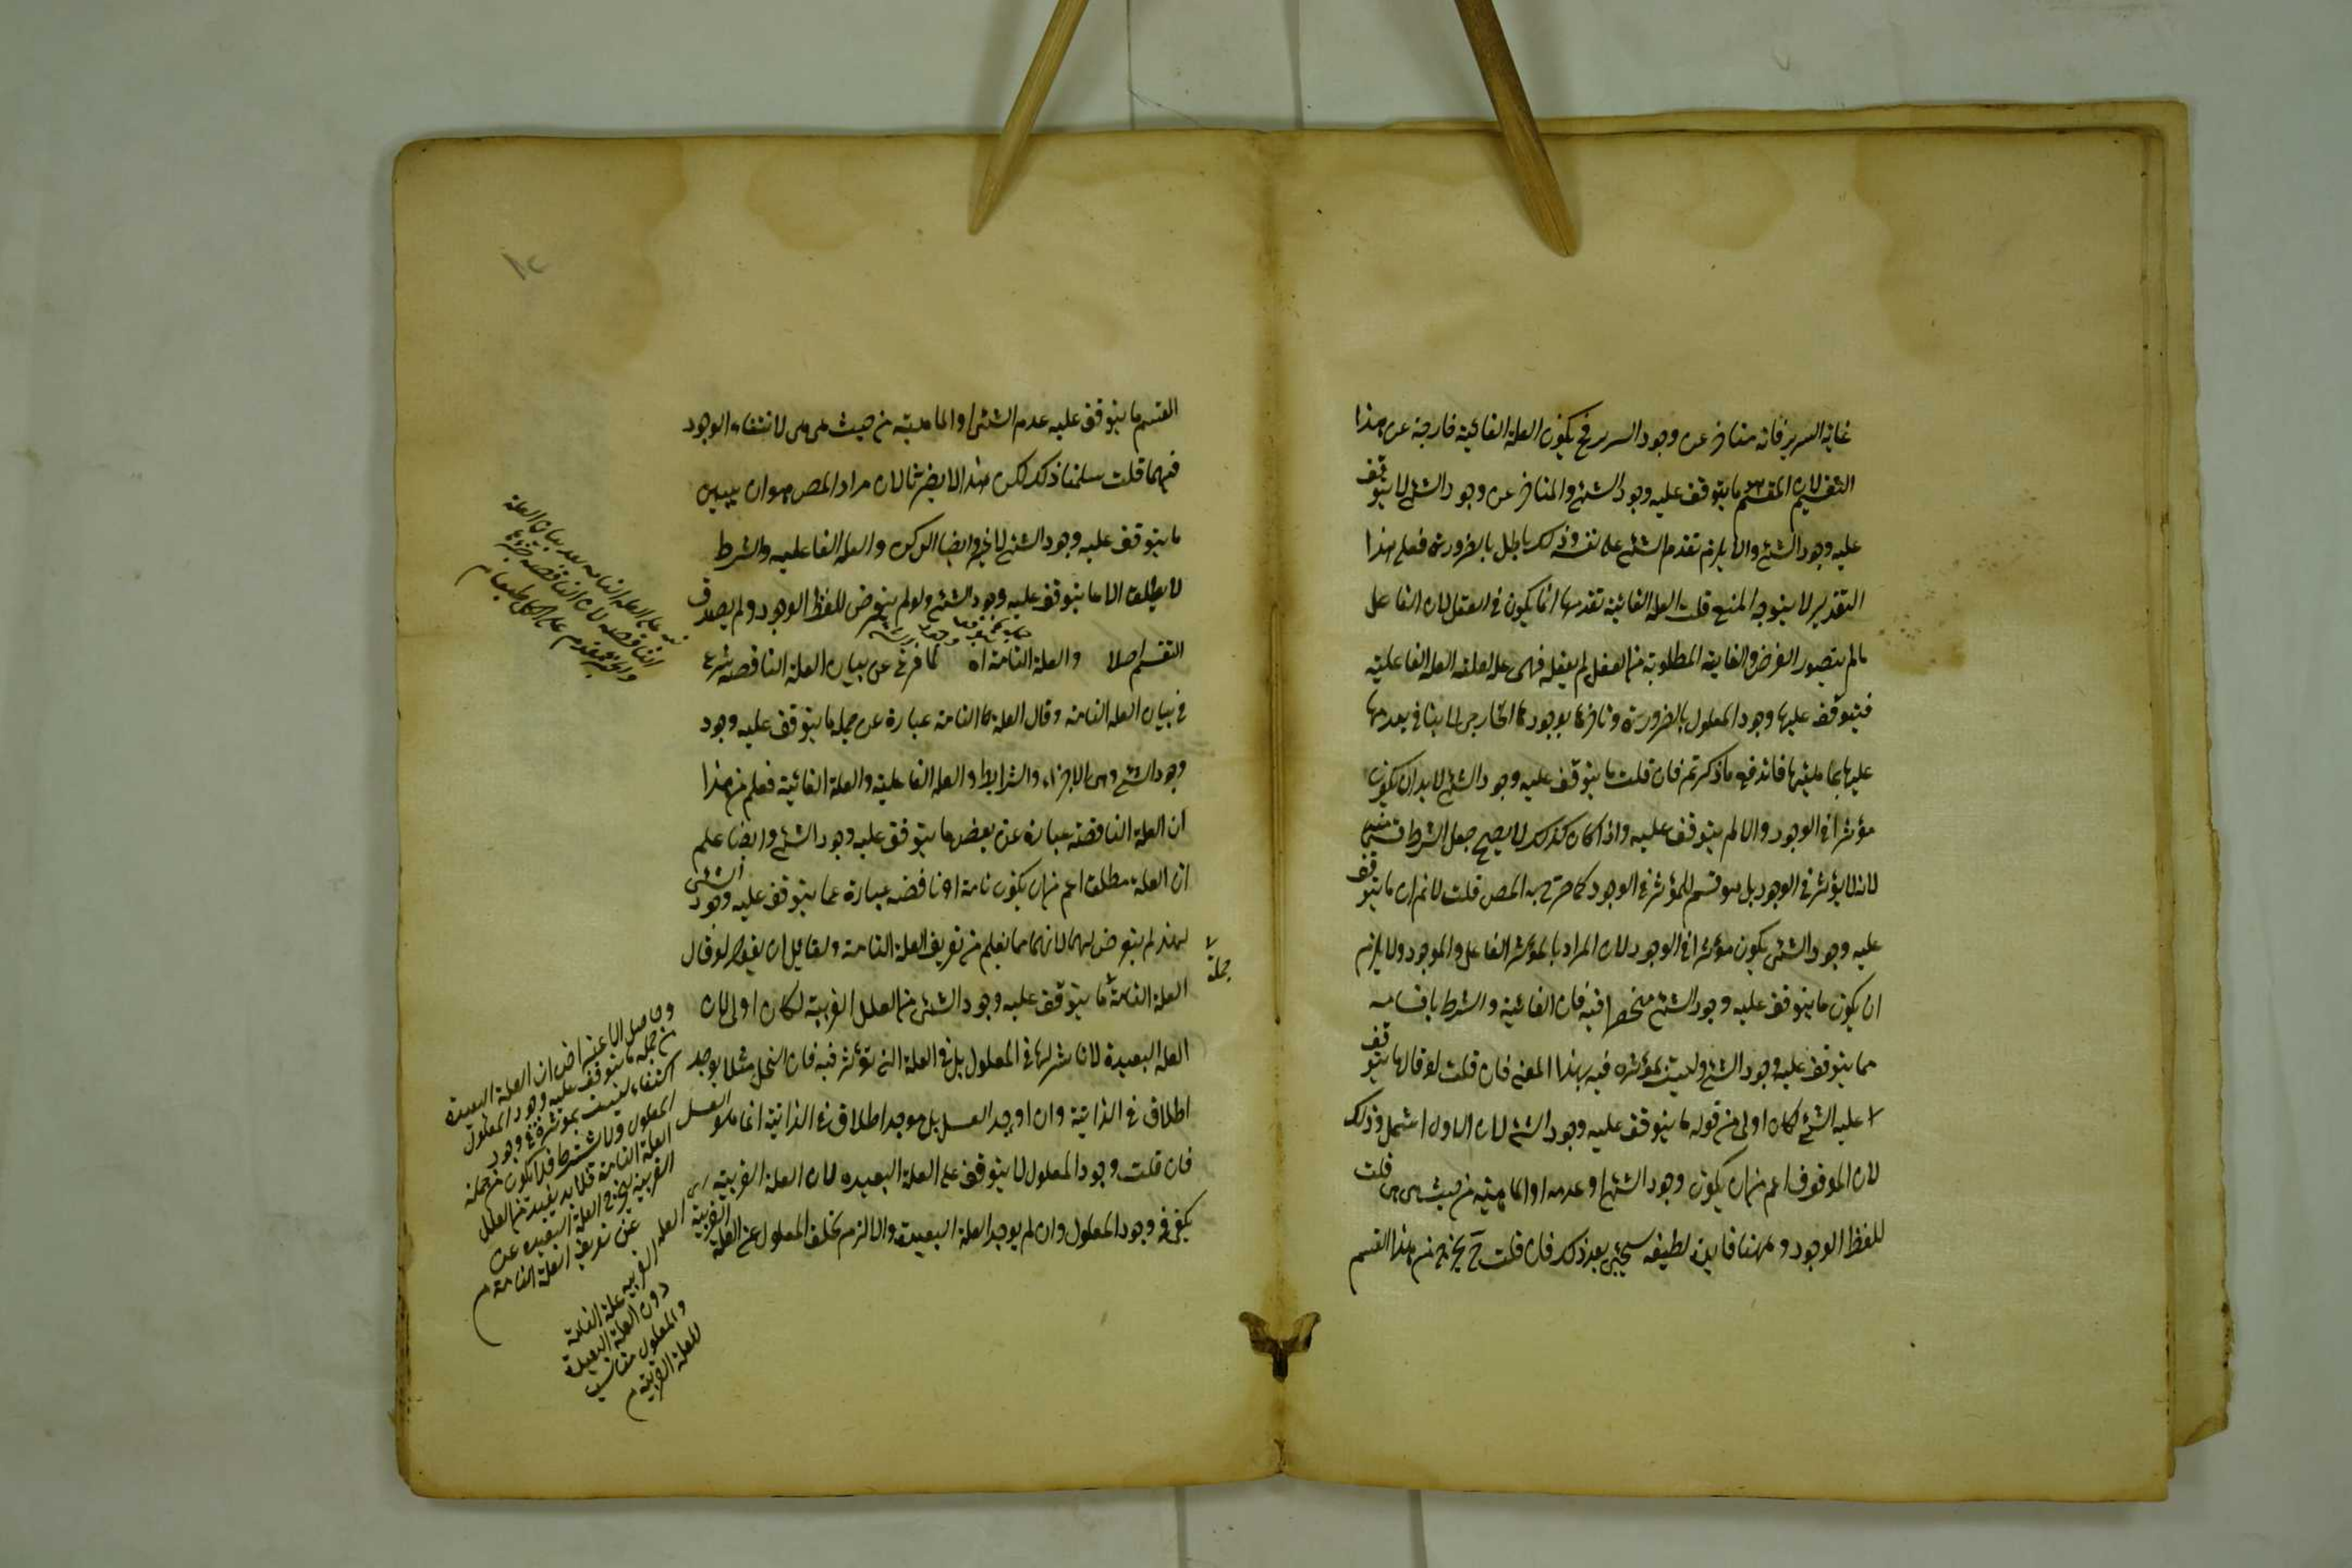 غاية السرير فانه متاخر عن وجود السرير فح يكون العلة الغائية خارجة عن هذا
التقسيم لان المقسم ما يتوقف عليه وجود الشئ والمتاخر عن وجود الشئ لا يتوقف
عليه وجود الشئ والا يلزم تقدم الشئ على نفسه وذلك باطل بالضرورة فعلى هذا
التقدير لا يتوجه المنع قلت العلة الغائية تقدمها انما يكون في العقل لان الفاعل
ما لم يتصور الغرض والغاية المطلوبة من الفعل لم يفعله فهى علة لعلية العلة الفاعلية
فيتوقف عليها وجود المعلول بالضرورة وتاخرها بوجودها الخارجى لا ينافي تقدمها
عليها بماهيتها فاندفع ما ذكرتم فان قلت ما يتوقف عليه وجود الشئ لابد ان يكون
مؤثرا في الوجود والا لم يتوقف عليه واذا كان كذلك لا يصح جعل الشرط قسما منه
لانه لا يؤثر في الوجود بل هو قسم للمؤثر في الوجود كما صرح به المص قلت لا نم ان ما يتوقف
عليه وجود الشئ يكون مؤثرا في الوجود لان المراد بالمؤثر الفاعل والموجد ولا يلزم
ان يكون ما يتوقف عليه وجود الشئ منحصرا فيه فان الغائية والشرط باقسامه
مما يتوقف عليه وجود الشئ وليست بمؤثرة فيه بهذا المعنى فان قلت لو قال ما يتوقف
عليه الشئ لكان اولى من قوله ما يتوقف عليه وجود الشئ لان الاول اشمل وذلك
لان الموقوف اعم من ان يكون وجود الشئ او عدمه او الماهية من حيث هى هى قلت
للفظ الوجود ههنا فايدة لطيفة سيجئ بعد ذلك فان قلت ح يخرج من هذا القسم
القسم ما يتوقف عليه عدم الشئ او الماهية من حيث هى هى لانتفاء الوجود
فيهما قلت سلمنا ذلك لكن هذا لا يضرنا لان مراد المص هو ان يبين
ما يتوقف عليه وجود الشئ لا غير وايضا الركن والعلة الفاعلية والشرط
لا يطلق الا ما يتوقف عليه وجود الشئ ولو لم يتعرض للفظ الوجود ولم يصدق
التقسيم اصلا والعلة التامة اه لما فرغ عن بيان العلة الناقصة شرع
في بيان العلة التامة وقال العلة التامة عبارة عن جملة ما يتوقف عليه وجود
وجود الشئ وهى الاجزاء والشرايط والعلة الفاعلية والعلة الغائية فعلم من هذا
ان العلة الناقصة عبارة عن بعض ما يتوقف عليه وجود الشئ وايضا علم
ان العلة مطلقا اعم من ان يكون تامة او ناقصة عبارة عما يتوقف عليه وجود الشئ
لم يتعرض لهما لانهما مما يعلم من تعريف العلة التامة ولقايل ان يقول لو قال
العلة التامة ما يتوقف عليه وجود الشئ من العلل القريبة لكان اولى لان
العلة البعيدة لا تاثير لها في المعلول بل في العلة التى تؤثر فيه فان النحل مثلا يوجد العسل
اطلاق في الذاتية وان اوجد العسل بل موجد اطلاق في الذاتية انما هو
فان قلت وجود المعلول لا يتوقف على العلة البعيدة لان العلة القريبة
يكفى في وجود المعلول وان لم يوجد العلة البعيدة والا لزم تخلف المعلول عن العلة القريبة
جملة
العلة التامة بعد بيان العلة
الناقصة لان الناقصة جزؤها
والجزء مقدم على الكل طبعا م
وحاصل الاعتراض ان العلة البعيدة
من جملة ما يتوقف عليه وجود المعلول
ليست بمؤثرة في وجود
المعلول فلا يكون من جملة
العلة التامة فلا بد يقيد من العلل
القريبة ليخرج العلة البعيدة عن
عن تعريف العلة التامة م
العلة القريبة علة التامة
دون العلة البعيدة
والمعلول مناسب
للعلة القريبة م